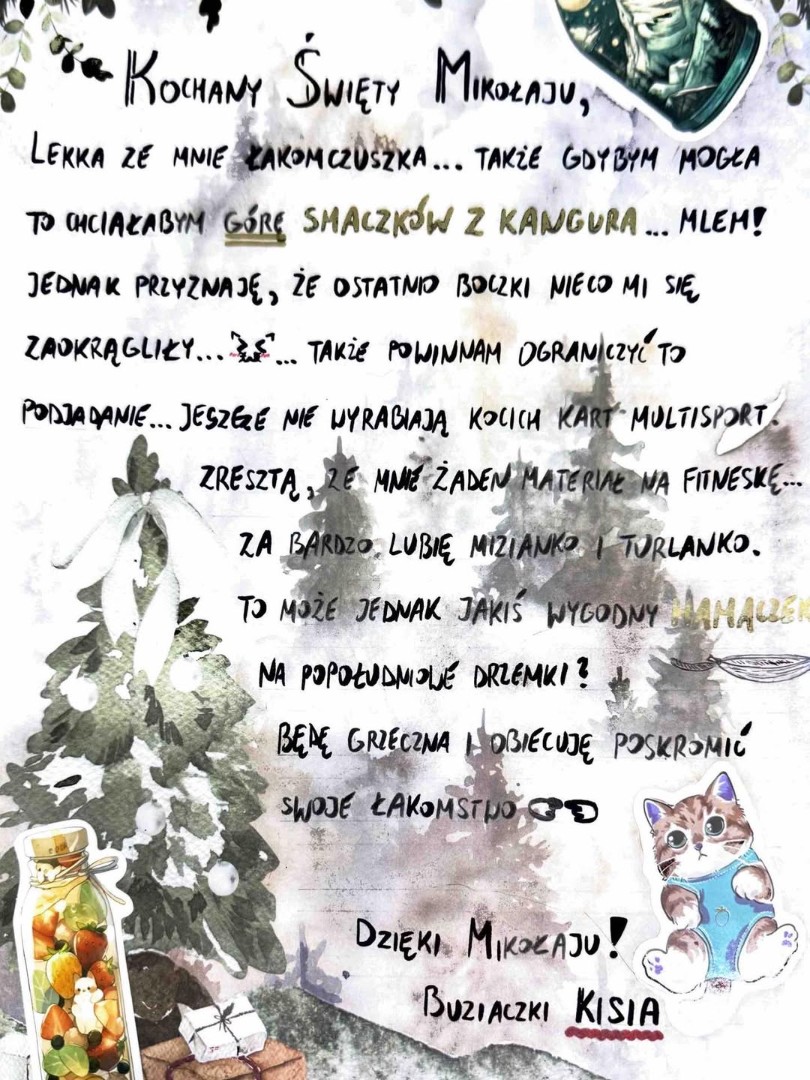 Kochany Święty Mikołaju,
Lekka ze mnie łakomczuszka... także gdybym mogła
to chciałabym górę smaczków z kangura... mlem!
Jednak przyznaję, że ostatnio boczki nieco mi się
zaokrągliły...... także powinnam ograniczyć to
podjadanie... Jeszcze nie wyrabiają kocich kart multisport.
Zresztą, ze mnie żaden materiał na fitneskę...
Za bardzo lubię mizianko i turlanko.
To może jednak jakiś wygodny hamaczek
na popołudniowe drzemki?
Będę grzeczna i obiecuję poskromić
swoje łakomstwo
Dzięki Mikołaju!
Buziaczki Kisia